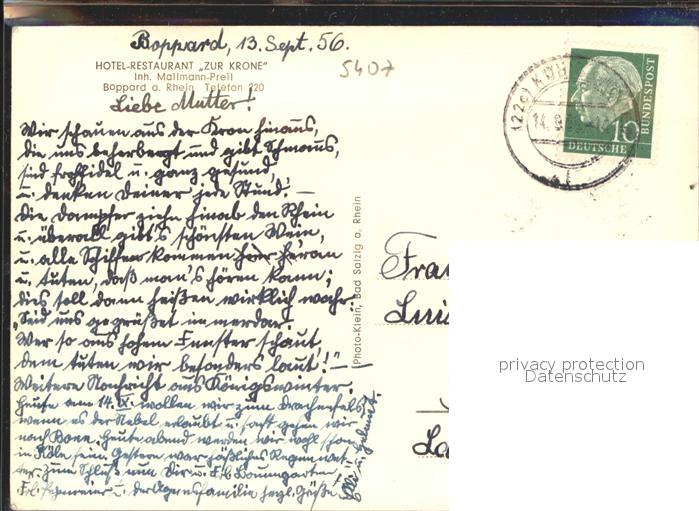 Boppard, 13. Sept. 56.
HOTEL-RESTAURANT „ZUR KRONE"
Inh. Mallmann-Preil
Boppard a. Rhein Telefon 220
5407
Liebe Mutter!
Wir schauen aus der Kron hinaus,
die uns beherbergt und gibt Schmaus,
sind frohfidel u. ganz gesund,
u. denken Deiner jede Stund. –
Die Dampfer ziehn hinab den Rhein
u. überall gibt's schönsten Wein,
u. alle Schiffer kommen heran
u. tuten, daß man's hören kann;
dies soll dann heißen wirklich wahr:
„Seid uns gegrüßet immerdar!
Wer so aus hohem Fenster schaut,
dem tuten wir besonders laut!" –
Weitere Nachricht aus Königswinter:
Heute am 14. IX. wollen wir zum Drachenfels,
wenn es der Nebel erlaubt u. gegen wir
nach Bonn. Heute abend werden wir wohl schon
in Köln sein. Gestern war häßliches Regenwet-
ter. Zum Schluß nun Dir u. Frl. Baumgarten,
Frl. u. der Agnesfamilie herzl. Grüße
u. Helmut.
Photo-Klein, Bad Salzig a. Rhein
(22c) KÖ
14. 9.
10
DEUTSCHE
BUNDESPOST
Frau
Lui
La
privacy protection
Datenschutz